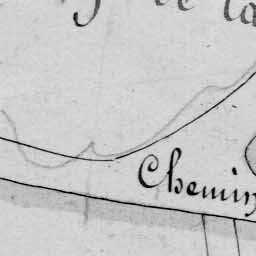 de la
Chemin